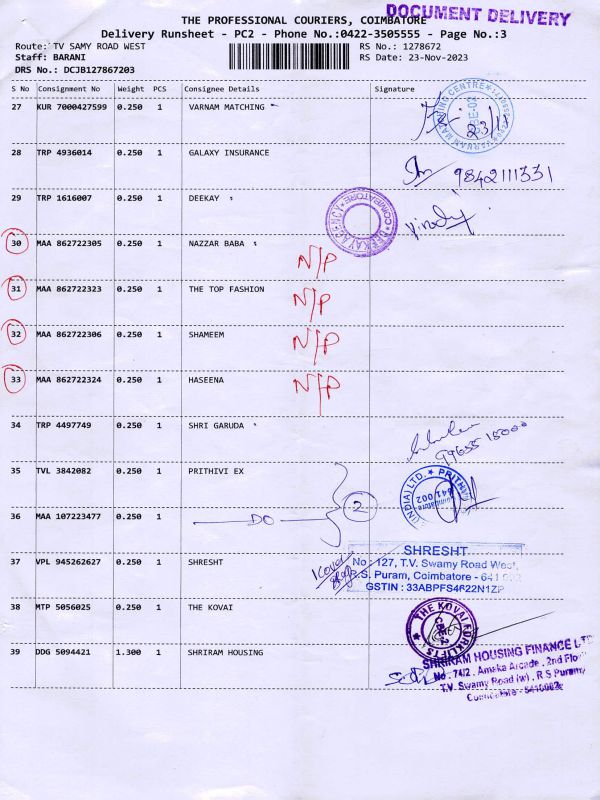 DOCUMENT DELIVERY
THE PROFESSIONAL COURIERS, COIMBATORE
Delivery Runsheet - PC2 - Phone No.:0422-3505555 - Page No.:3
Route: TV SAMY ROAD WEST
RS No.: 1278672
Staff: BARANI
RS Date: 23-Nov-2023
DRS No.: DCJB127867203
S No Consignment No Weight PCS Consignee Details Signature
27 KUR 7000427599 0.250 1 VARNAM MATCHING
28 TRP 4936014 0.250 1 GALAXY INSURANCE 9842111331
29 TRP 1616007 0.250 1 DEEKAY
DEEKAY AGENCY COIMBATORE
30 MAA 862722305 0.250 1 NAZZAR BABA N/P
31 MAA 862722323 0.250 1 THE TOP FASHION N/P
32 MAA 862722306 0.250 1 SHAMEEM N/P
33 MAA 862722324 0.250 1 HASEENA N/P
34 TRP 4497749 0.250 1 SHRI GARUDA
35 TVL 3842082 0.250 1 PRITHIVI EX
36 MAA 107223477 0.250 1 DO 2
37 VPL 945262627 0.250 1 SHRESHT
SHRESHT
No : 127, T.V. Swamy Road West,
R.S. Puram, Coimbatore - 641 002
38 MTP 5056025 0.250 1 THE KOVAI
THE KOVAI FORKLIFTS
39 DDG 5094421 1.300 1 SHRIRAM HOUSING
SHRIRAM HOUSING FINANCE LTD
No . 74/2 , Amaka Arcade , 2nd Floor
T.V. Swamy Road (w) , R S Puram